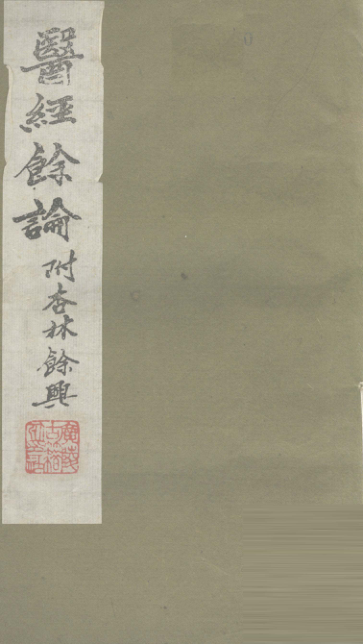 醫經餘論
附杏林餘興